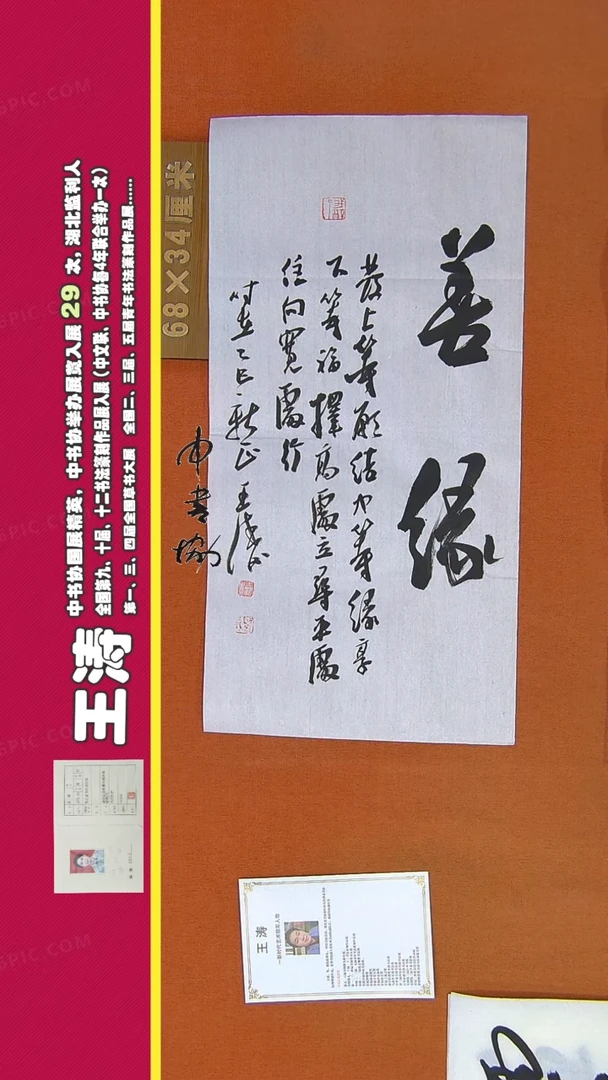 王涛
中书协国展精英，中书协举办展览入展 29 次，湖北监利人
全国第九、十届、十二书法篆刻作品展入展（中文联、中书协每4年联合举办一次）
第一、三、四届全国草书大展 全国二、三届、五届青年书法篆刻作品展......
68×34厘米
善缘
发上等愿结中等缘享
下等福择高处立寻平处
住向宽处行
时在乙巳新正王涛
中书协
王涛